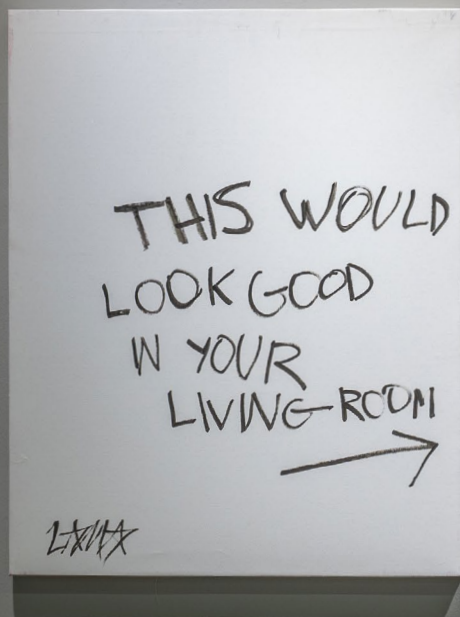 THIS WOULD
LOOK GOOD
IN YOUR
LIVING-ROOM